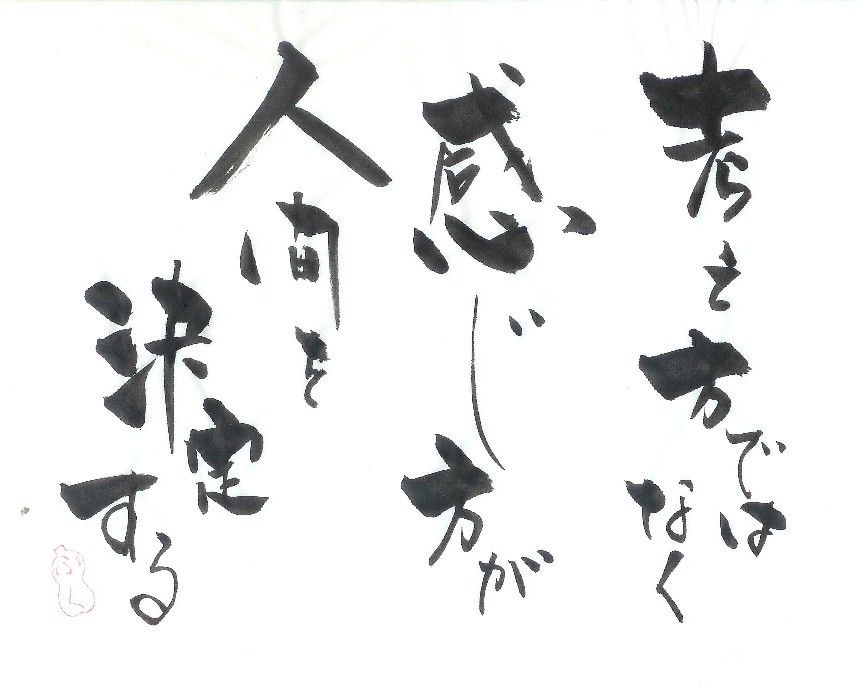 考え方ではなく
感じ方が
人間を
決定する